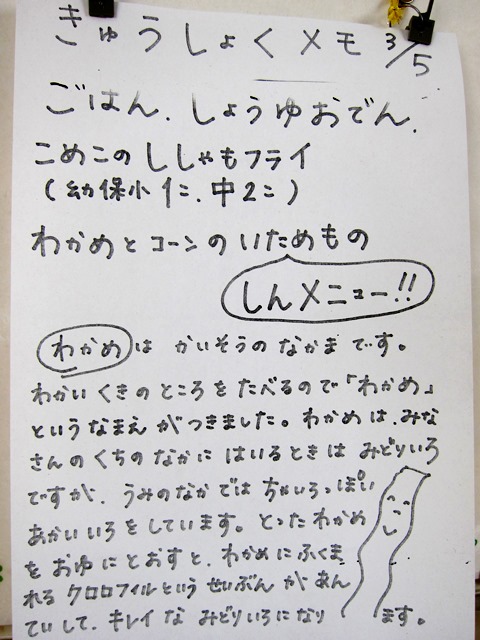 きゅうしょくメモ 3/5
ごはん、しょうゆおでん、
こめこのししゃもフライ
(幼保小1こ、中2こ)
わかめとコーンのいためもの
しんメニュー!!
わかめは かいそうのなかまです。
わかいくきのところをたべるので「わかめ」
というなまえがつきました。わかめは、みな
さんのくちのなかにはいるときはみどりいろ
ですが、うみのなかではちゃいろっぽい
あかいいろをしています。とったわかめ
をおゆにとおすと、わかめにふくま
れるクロロフィルというせいぶんがあん
ていして、キレイなみどりいろになります。